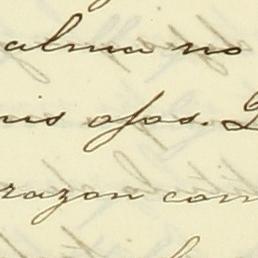 alma no
mis ojos.
razon com